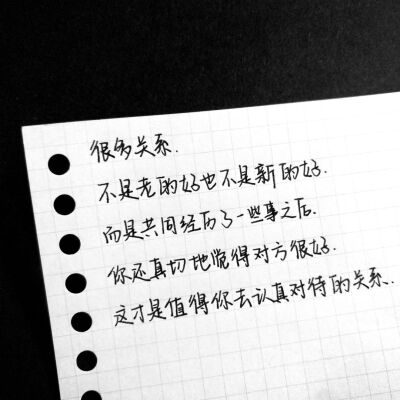 很多关系.
不是老的好也不是新的好.
而是共同经历了一些事之后.
你还真切地觉得对方很好.
这才是值得你去认真对待的关系.